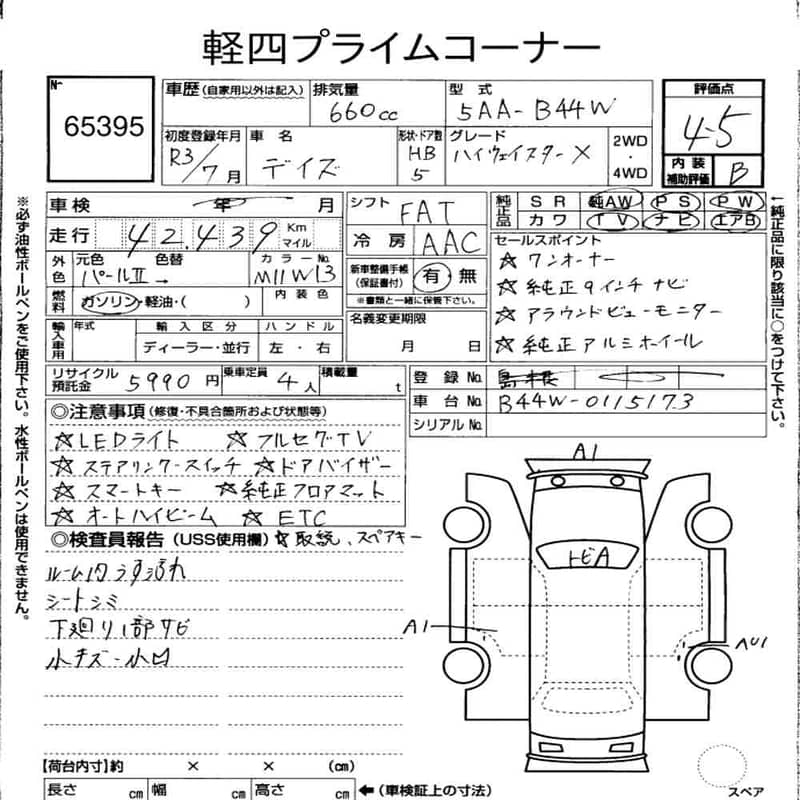 軽四プライムコーナー
№
65395
車歴(自家用以外は記入)
排気量
660cc
型式
5AA-B44W
評価点
4.5
内装
補助評価
B
初度登録年月
R3/7月
車名
デイズ
形状・ドア数
HB
5
グレード
ハイウェイスターX
2WD
・
4WD
車検 年 月
走行 42,439 Km
マイル
シフト FAT
冷房 AAC
純正品
SR 純AW PS PW
カワ TV ナビ エアB
外色
元色
パールⅡ
色替
→
カラーNo.
M11W13
燃料
ガソリン・軽油・( )
内装色
新車整備手帳
(保証書付)
有 無
※書類と一緒に保管下さい。
セールスポイント
☆ワンオーナー
☆純正9インチナビ
☆アラウンドビューモニター
☆純正アルミホイール
輸入車用
年式
輸入区分
ディーラー・並行
ハンドル
左・右
名義変更期限
月 日
リサイクル
預託金
5990円
乗車定員
4人
積載量
t
登録No.
車台No. B44W-0115173
シリアルNo.
◎注意事項(修復・不具合箇所および状態等)
☆LEDライト ☆フルセグTV
☆ステアリングースイッチ ☆ドアバイザー
☆スマートキー ☆純正フロアマット
☆オートハイビーム ☆ETC
◎検査員報告(USS使用欄)☆取説、スペアキー
ルーム内うす汚れ
シートシミ
下廻り1部サビ
小キズ・小凹
A1
トビA
A1
AU1
【荷台内寸】約 × × (cm)
長さ cm 幅 cm 高さ cm ←(車検証上の寸法)
スペア
※必ず油性ボールペンをご使用下さい。水性ボールペンは使用できません。
←純正品に限り該当に○をつけて下さい。